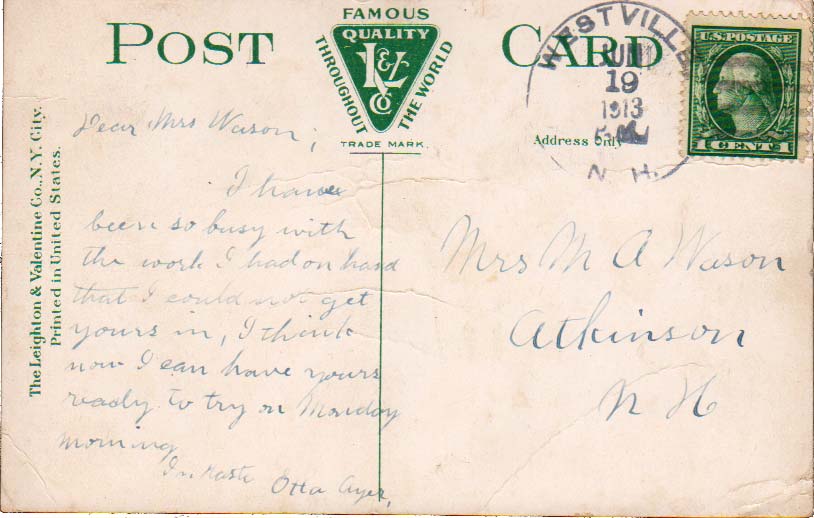 POST CARD
FAMOUS
QUALITY
THROUGHOUT THE WORLD
L & V
Co
TRADE MARK.
WESTVILLE
JUN
19
1913
N. H.
U.S. POSTAGE
1 CENT 1
Address Only
The Leighton & Valentine Co., N.Y. City.
Printed in United States.
Dear Mrs Wason;
I have
been so busy with
the work I had on hand
that I could not get
yours in, I think
now I can have yours
ready to try on Monday
morning
In haste
Otta Ayer,
Mrs M A Wason
Atkinson
N H